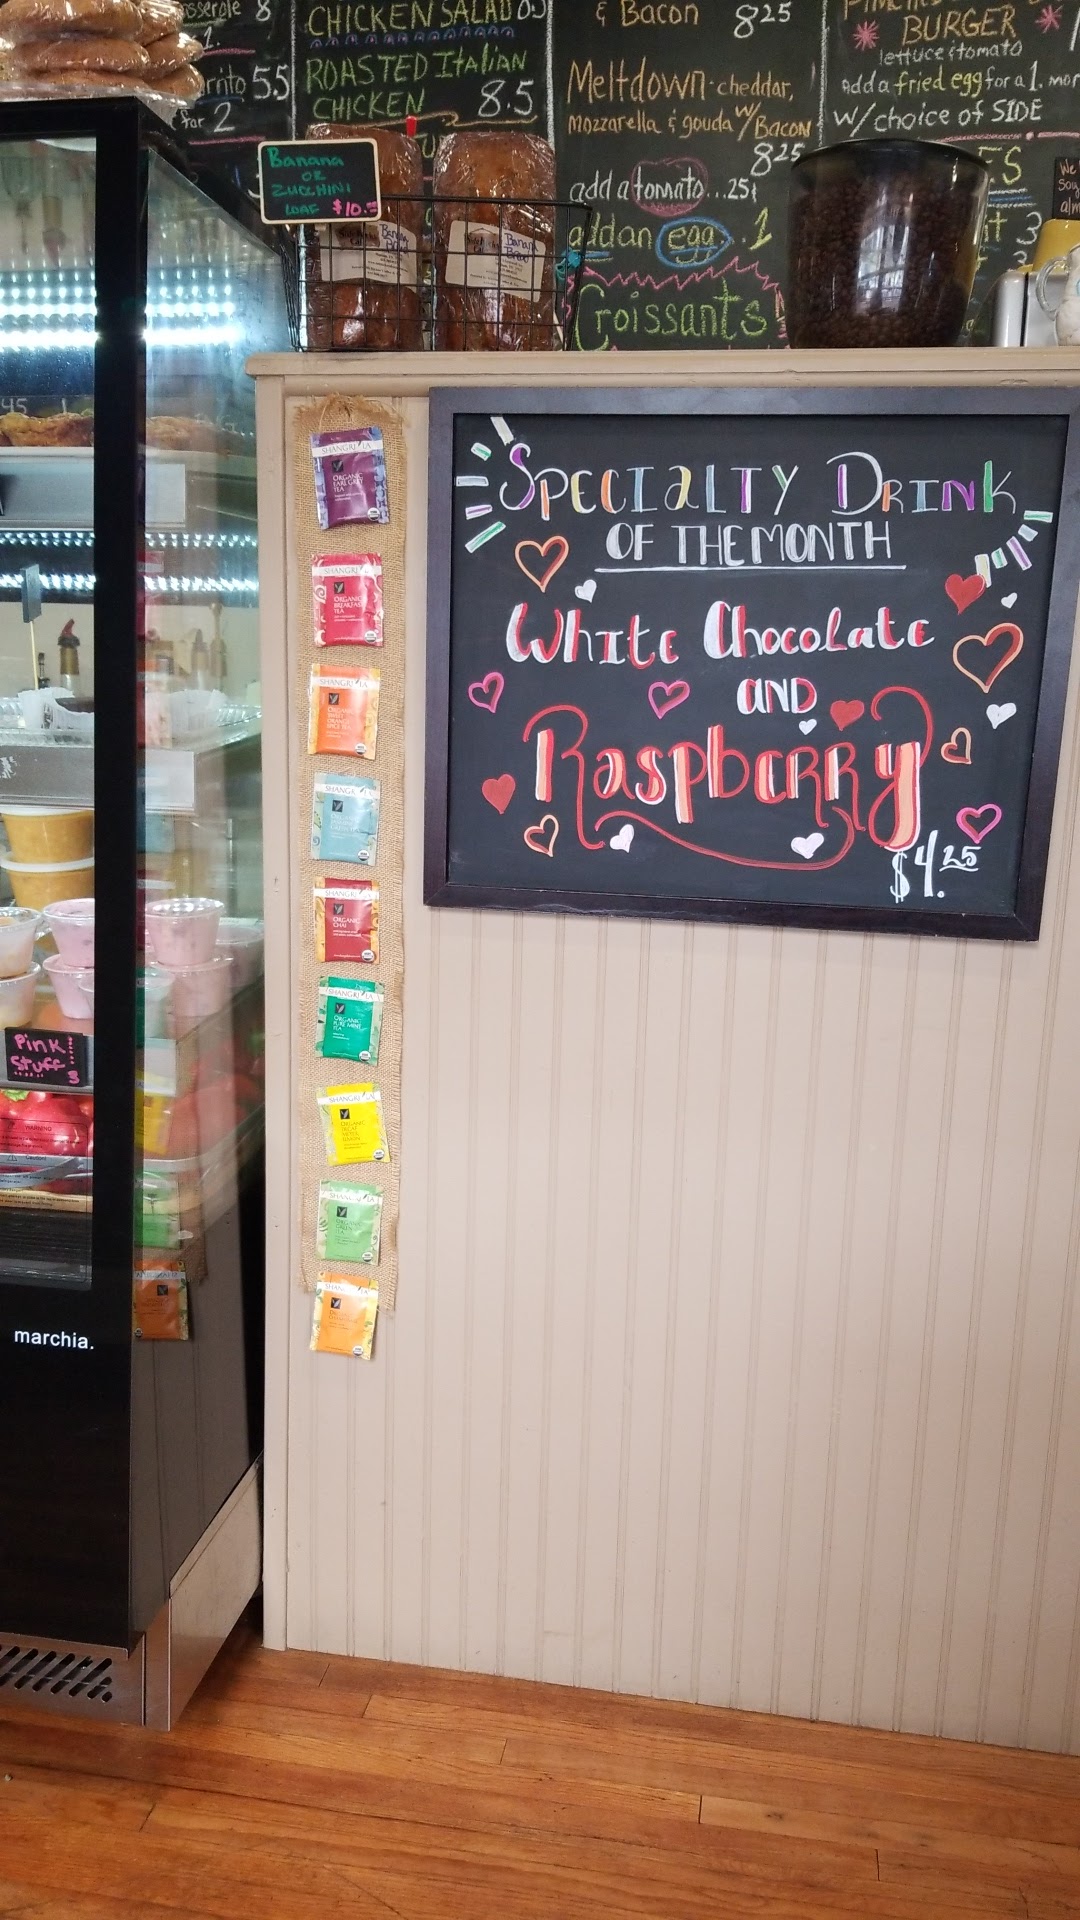 sserole 8
1.
rrito 5.5
for 2
CHICKEN SALAD
ROASTED Italian
CHICKEN 8.5
& Bacon 8 25
Meltdown - cheddar,
mozzarella & gouda w/ Bacon
8 25
add a tomato...25¢
add an egg..1
Croissants
BURGER
lettuce & tomato
Add a fried egg for a 1. mor
w/ choice of SIDE
ES
it 3
We
Soy
alm
Banana
OR
ZUCCHINI
LOAF $10.00
Banana
Bread
SPECIALTY DRINK
OF THE MONTH
White Chocolate
AND
Raspberry
$4.25
SHANGRI LA
ORGANIC
EARL GREY
TEA
SHANGRI LA
ORGANIC
BREAKFAST
TEA
SHANGRI LA
ORGANIC
SWEET
ORANGE
SPICE TEA
SHANGRI LA
SHANGRI LA
ORGANIC
CHAI
SHANGRI LA
ORGANIC
PURE MINT
TEA
SHANGRI LA
ORGANIC
SHANGRI LA
ORGANIC
GREEN
TEA
SHANGRI LA
45
Pink
Stuff 3
WARNING
Caution
marchia.